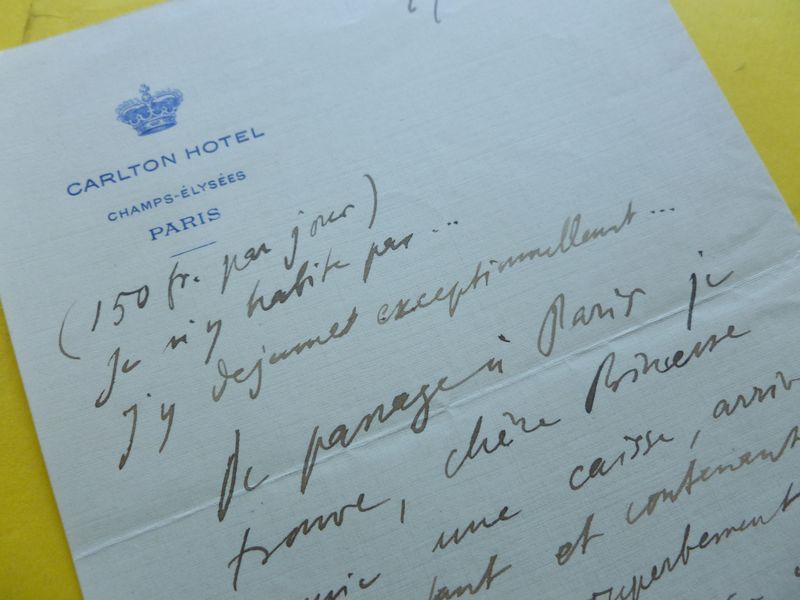 CARLTON HOTEL
CHAMPS-ÉLYSÉES
PARIS
(150 fr. par jour)
Je n'y habite pas...
J'y dejeunes exceptionnellement...
De passage à Paris je
trouve, chère Princesse
une caisse, arriv
et contenant
superbement